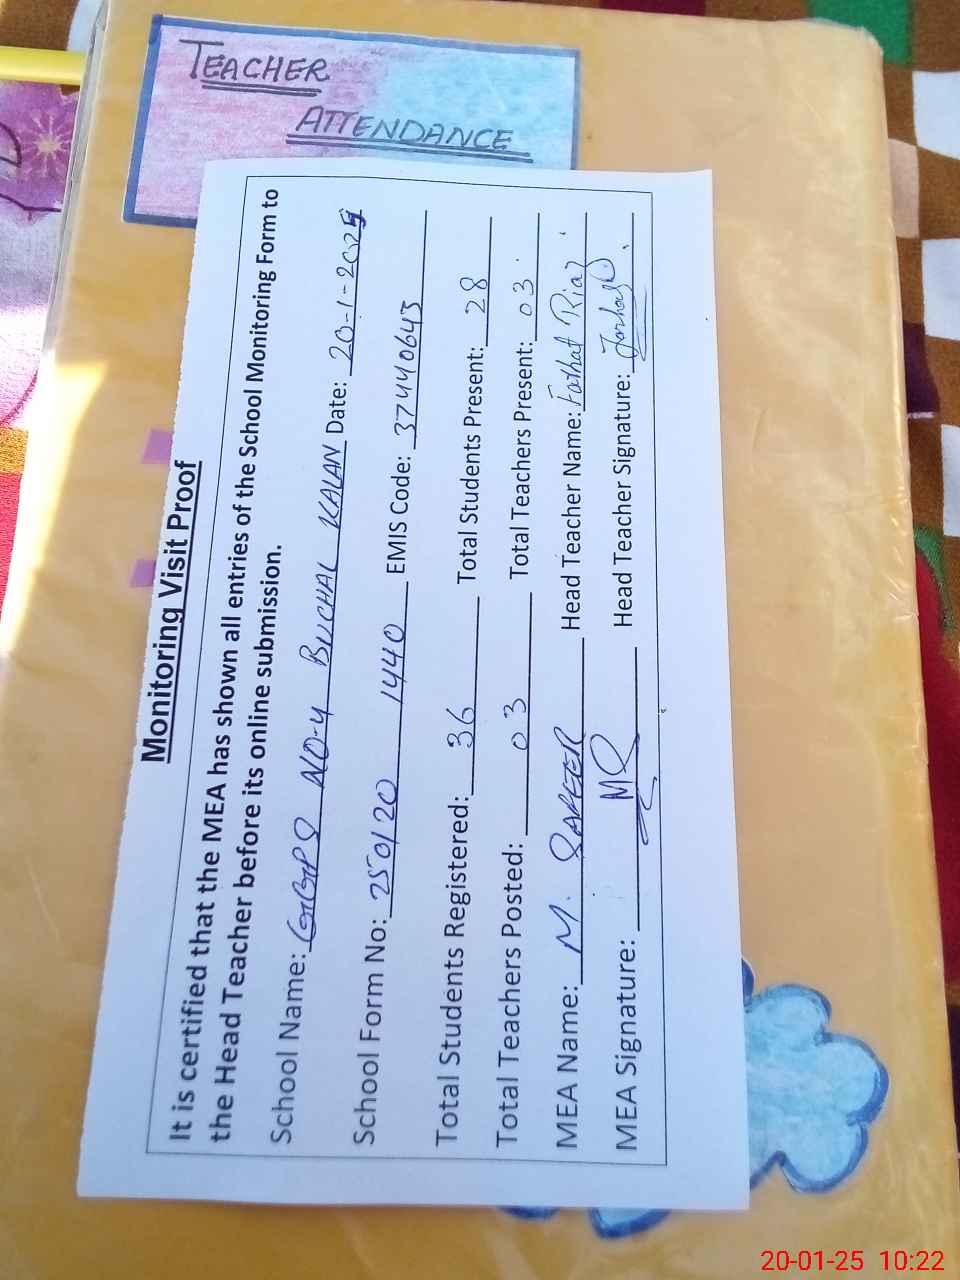 TEACHER
ATTENDANCE
Monitoring Visit Proof
It is certified that the MEA has shown all entries of the School Monitoring Form to
the Head Teacher before its online submission.
School Name: GGPS NO-4 BUCHAL KALAN Date: 20-1-2025
School Form No: 250120 1440 EMIS Code: 37440643
Total Students Registered: 36 Total Students Present: 28
Total Teachers Posted: 03 Total Teachers Present: 03
MEA Name: M. SAFEER Head Teacher Name: Farhat Riaz
MEA Signature: MS Head Teacher Signature: Farhat
20-01-25 10:22